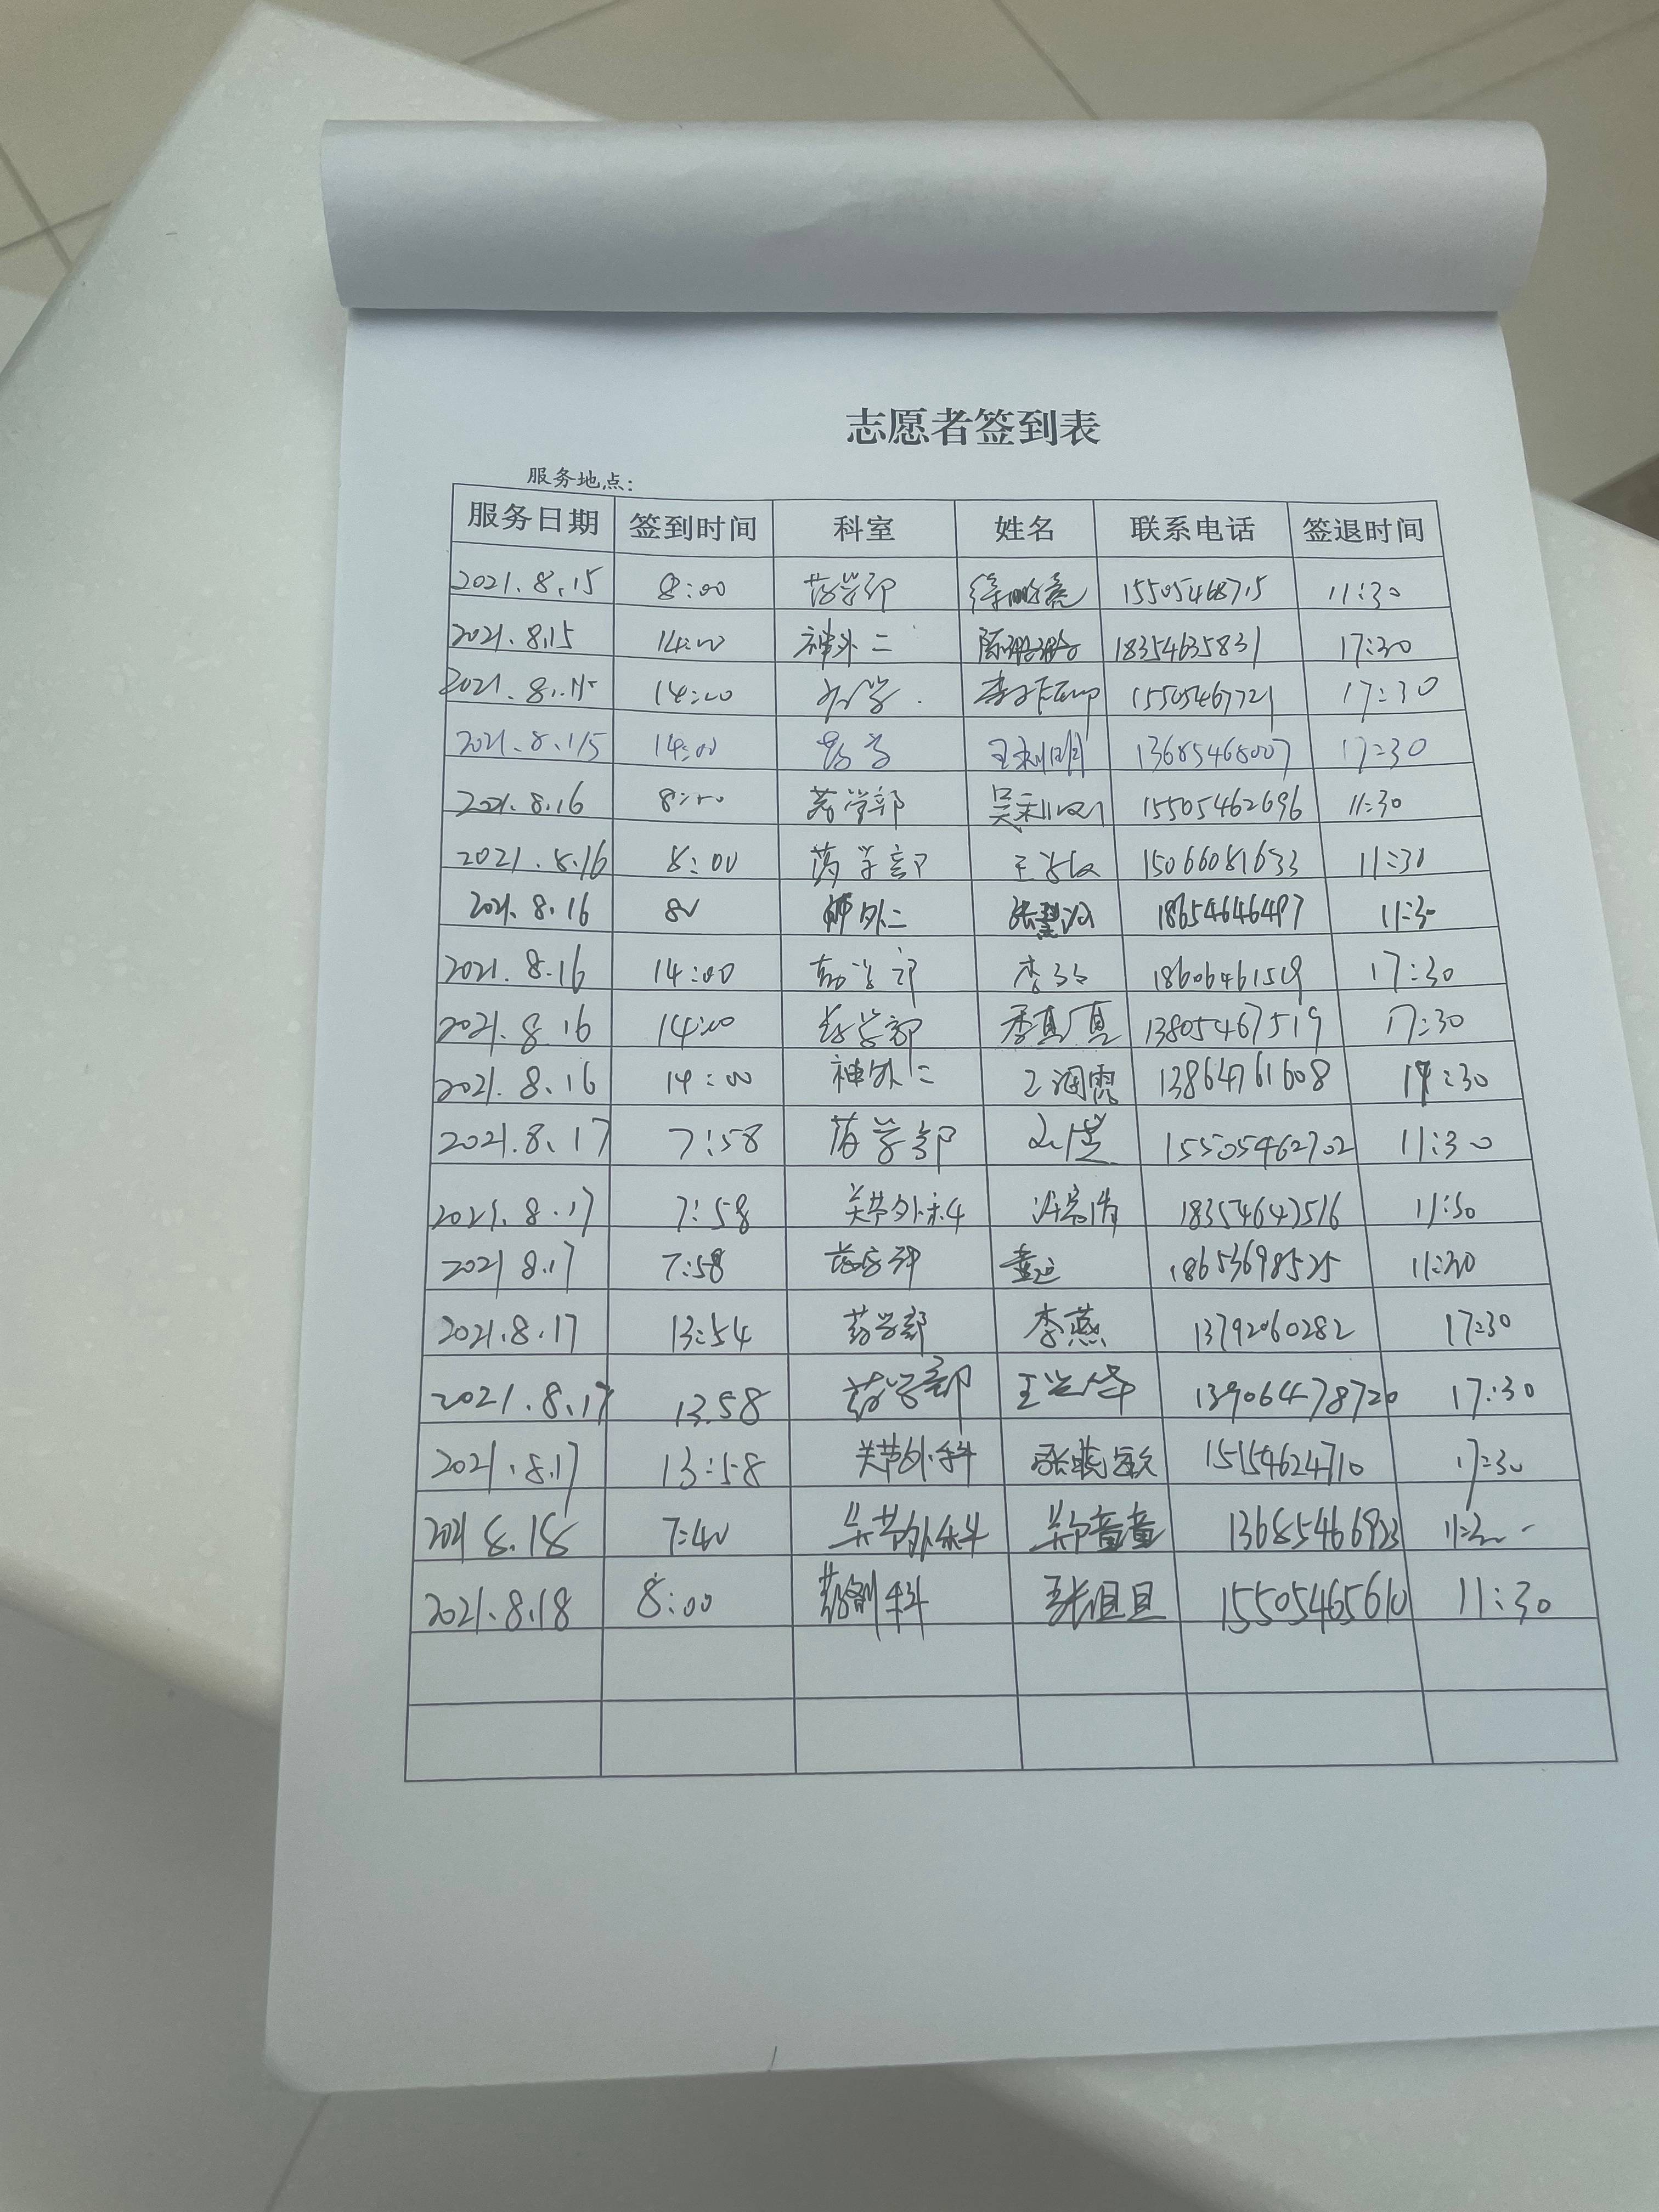 志愿者签到表
服务地点：
服务日期 签到时间 科室 姓名 联系电话 签退时间
2021.8.15 8:00 药学部 15505468715 11:30
2021.8.15 14:00 神外二 18354635831 17:30
2021.8.15 14:00 15505467721 17:30
2021.8.15 14:00 药学 王利明 13685468007 17:30
2021.8.16 8:00 药学部 15505462696 11:30
2021.8.16 8:00 药学部 15066081633 11:30
2021.8.16 神外二 18654646497 11:30
2021.8.16 14:00 药学部 18606461519 17:30
2021.8.16 14:00 药学部 季真真 13805467519 17:30
2021.8.16 14:00 神外二 王润霞 13864761608 17:30
2021.8.17 7:58 药学部 15505462702 11:30
2021.8.17 7:58 关节外科 18354642516 11:30
2021 8.17 7:58 药学部 18653698525 11:30
2021.8.17 13:54 药学部 李燕 13792060282 17:30
2021.8.17 13.58 药学部 13906478720 17:30
2021.8.17 13:58 关节外科 15154624710 17:30
2021 8.18 7:40 关节外科 郑童童 13685466923 11:30
2021.8.18 8:00 药剂科 张坦坦 15505465610 11:30